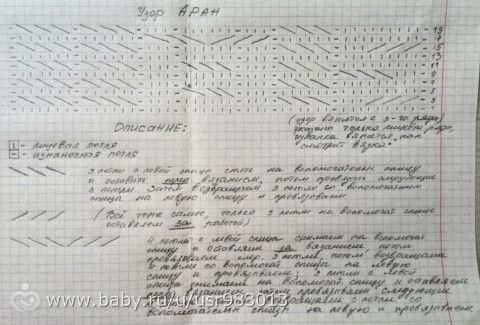 Узор АРАН
19
17
15
13
11
9
7
5
3
(узор вяжется с 3-го ряда)
указаны только лицевые ряды,
изнанка вяжется, как
"смотрит вязка"
Описание:
- лицевая петля
- изнаночная петля
3 петли с левой спицы снять на вспомогательн. спицу
и оставить перед вязанием, потом провязать следующие
3 петли. Затем возвращаем 3 петли со вспомогательн
спицы на левую спицу и провязываем
(Всё тоже самое, только 3 петли на вспомогат спице
оставляем за работой)
4 петли с левой спицы снимаем на вспомогат
спицу и оставляем за вязанием, потом
провязываем след. 3 петли, потом возвращаем
петли со вспомогат спицы на левую
спицу и провязываем; 3 петли с левой
спицы снимаем на вспомогат спицу и оставляем
вязанием, затем провязываем следующие
петли со
вспомогательн спицы на левую и провязываем.
www.baby.ru/u/usr983013